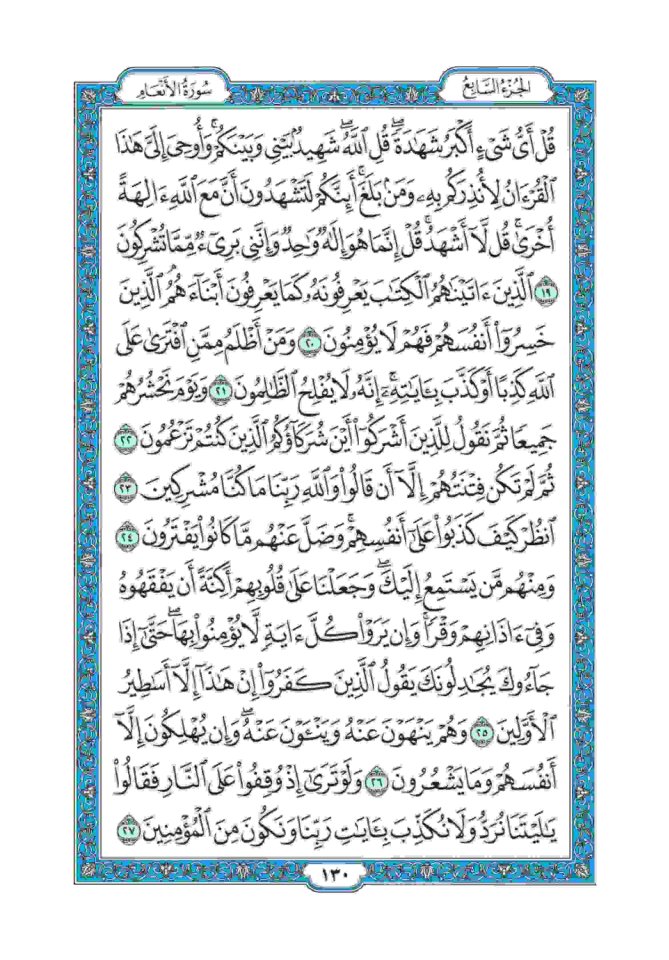 الجزء السابع
سورة الأنعام
قُلْ أَيُّ شَيْءٍ أَكْبَرُ شَهَٰدَةً ۖ قُلِ ٱللَّهُ ۖ شَهِيدٌۢ بَيْنِي وَبَيْنَكُمْ ۚ وَأُوحِيَ إِلَيَّ هَٰذَا
ٱلْقُرْءَانُ لِأُنذِرَكُم بِهِۦ وَمَنۢ بَلَغَ ۚ أَئِنَّكُمْ لَتَشْهَدُونَ أَنَّ مَعَ ٱللَّهِ ءَالِهَةً
أُخْرَىٰ ۚ قُل لَّآ أَشْهَدُ ۚ قُلْ إِنَّمَا هُوَ إِلَٰهٌ وَٰحِدٌ وَإِنَّنِي بَرِيٓءٌ مِّمَّا تُشْرِكُونَ
١٩ ٱلَّذِينَ ءَاتَيْنَٰهُمُ ٱلْكِتَٰبَ يَعْرِفُونَهُۥ كَمَا يَعْرِفُونَ أَبْنَآءَهُمُ ٱلَّذِينَ
خَسِرُوٓا۟ أَنفُسَهُمْ فَهُمْ لَا يُؤْمِنُونَ ٢٠ وَمَنْ أَظْلَمُ مِمَّنِ ٱفْتَرَىٰ عَلَى
ٱللَّهِ كَذِبًا أَوْ كَذَّبَ بِـَٔايَٰتِهِۦٓ ۗ إِنَّهُۥ لَا يُفْلِحُ ٱلظَّٰلِمُونَ ٢١ وَيَوْمَ نَحْشُرُهُمْ
جَمِيعًا ثُمَّ نَقُولُ لِلَّذِينَ أَشْرَكُوٓا۟ أَيْنَ شُرَكَآؤُكُمُ ٱلَّذِينَ كُنتُمْ تَزْعُمُونَ ٢٢
ثُمَّ لَمْ تَكُن فِتْنَتُهُمْ إِلَّآ أَن قَالُوا۟ وَٱللَّهِ رَبِّنَا مَا كُنَّا مُشْرِكِينَ ٢٣
ٱنظُرْ كَيْفَ كَذَبُوا۟ عَلَىٰٓ أَنفُسِهِمْ ۚ وَضَلَّ عَنْهُم مَّا كَانُوا۟ يَفْتَرُونَ ٢٤
وَمِنْهُم مَّن يَسْتَمِعُ إِلَيْكَ ۖ وَجَعَلْنَا عَلَىٰ قُلُوبِهِمْ أَكِنَّةً أَن يَفْقَهُوهُ
وَفِيٓ ءَاذَانِهِمْ وَقْرًا ۚ وَإِن يَرَوْا۟ كُلَّ ءَايَةٍ لَّا يُؤْمِنُوا۟ بِهَا ۚ حَتَّىٰٓ إِذَا
جَآءُوكَ يُجَٰدِلُونَكَ يَقُولُ ٱلَّذِينَ كَفَرُوٓا۟ إِنْ هَٰذَآ إِلَّآ أَسَٰطِيرُ
ٱلْأَوَّلِينَ ٢٥ وَهُمْ يَنْهَوْنَ عَنْهُ وَيَنْـَٔوْنَ عَنْهُ ۖ وَإِن يُهْلِكُونَ إِلَّآ
أَنفُسَهُمْ وَمَا يَشْعُرُونَ ٢٦ وَلَوْ تَرَىٰٓ إِذْ وُقِفُوا۟ عَلَى ٱلنَّارِ فَقَالُوا۟
يَٰلَيْتَنَا نُرَدُّ وَلَا نُكَذِّبَ بِـَٔايَٰتِ رَبِّنَا وَنَكُونَ مِنَ ٱلْمُؤْمِنِينَ ٢٧
١٣٠